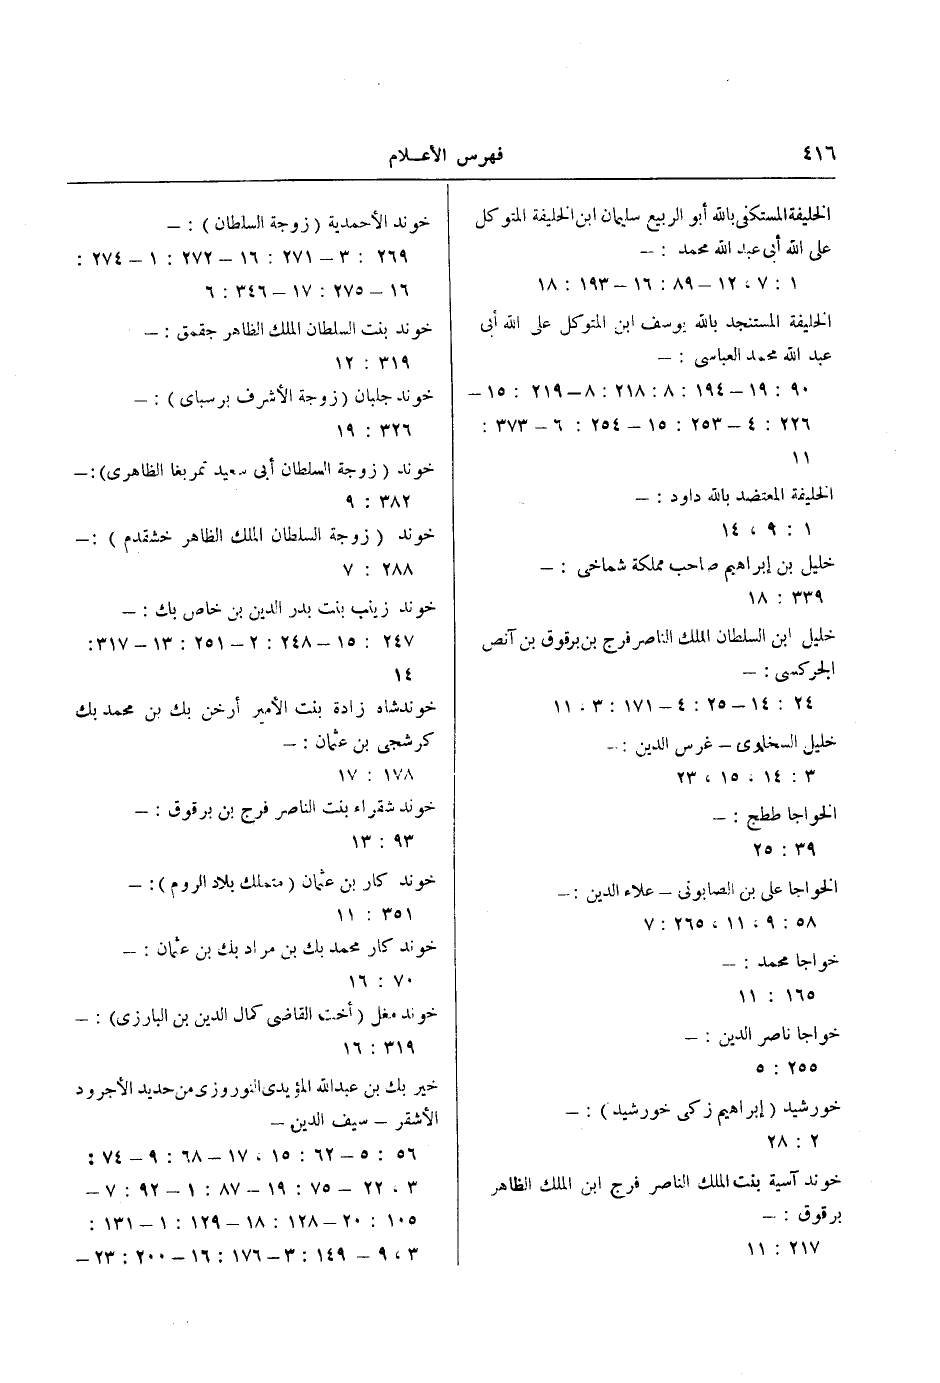 ٤١٦
فهرس الأعـلام
الخليفة المستكفى بالله أبو الربيع سليمان ابن الخليفة المتوكل
على الله أبى عبد الله محمد : —
١ : ٧ ، ١٢ — ٨٩ : ١٦ — ١٩٣ : ١٨
الخليفة المستنجد بالله يوسف ابن المتوكل على الله أبى
عبد الله محمد العباسى : —
٩٠ : ١٩ — ١٩٤ : ٨ : ٢١٨ : ٨ — ٢١٩ : ١٥ —
٢٢٦ : ٤ — ٢٥٣ : ١٥ — ٢٥٤ : ٦ — ٣٧٣ :
١١
الخليفة المعتضد بالله داود : —
١ : ٩ ، ١٤
خليل بن إبراهيم صاحب مملكة شماخى : —
٣٣٩ : ١٨
خليل ابن السلطان الملك الناصر فرج بن برقوق بن آنص
الجركسى : —
٢٤ : ١٤ — ٢٥ : ٤ — ١٧١ : ٣ ، ١١
خليل السخاوى — غرس الدين : —
٣ : ١٤ ، ١٥ ، ٢٣
الخواجا ططج : —
٣٩ : ٢٥
الخواجا على بن الصابونى — علاء الدين : —
٥٨ : ٩ ، ١١ ، ٢٦٥ : ٧
خواجا محمد : —
١٦٥ : ١١
خواجا ناصر الدين : —
٢٥٥ : ٥
خورشيد ( إبراهيم زكى خورشيد ) : —
٢ : ٢٨
خوند آسية بنت الملك الناصر فرج ابن الملك الظاهر
برقوق : —
٢١٧ : ١١
خوند الأحمدية ( زوجة السلطان ) : —
٢٦٩ : ٣ — ٢٧١ : ١٦ — ٢٧٢ : ١ — ٢٧٤ :
١٦ — ٢٧٥ : ١٧ — ٣٤٦ : ٦
خوند بنت السلطان الملك الظاهر جقمق : —
٣١٩ : ١٢
خوند جلبان ( زوجة الأشرف برسباى ) : —
٣٢٦ : ١٩
خوند ( زوجة السلطان أبى سعيد تمربغا الظاهرى) : —
٣٨٢ : ٩
خوند ( زوجة السلطان الملك الظاهر خشقدم ) : —
٢٨٨ : ٧
خوند زينب بنت بدر الدين بن خاص بك : —
٢٤٧ : ١٥ — ٢٤٨ : ٢ — ٢٥١ : ١٣ — ٣١٧ :
١٤
خوندشاه زادة بنت الأمير أرخن بك بن محمد بك
كرشجى بن عثمان : —
١٧٨ : ١٧
خوند شقراء بنت الناصر فرج بن برقوق : —
٩٣ : ١٣
خوند كار بن عثمان ( متملك بلاد الروم ) : —
٣٥١ : ١١
خوند كار محمد بك بن مراد بك بن عثمان : —
٧٠ : ١٦
خوند مغل ( أخت القاضى كمال الدين بن البارزى) : —
٣١٩ : ١٦
خير بك بن عبدالله المؤيدى النوروزى من حديد الأجرود
الأشقر — سيف الدين —
٥٦ : ٥ — ٦٢ : ١٥ ، ١٧ — ٦٨ : ٩ — ٧٤ :
٣ ، ٢٢ — ٧٥ : ١٩ — ٨٧ : ١ — ٩٢ : ٧ —
١٠٥ : ٢٠ — ١٢٨ : ١٨ — ١٢٩ : ١ — ١٣١ :
٣ ، ٩ — ١٤٩ : ٣ — ١٧٦ : ١٦ — ٢٠٠ : ٢٣ —